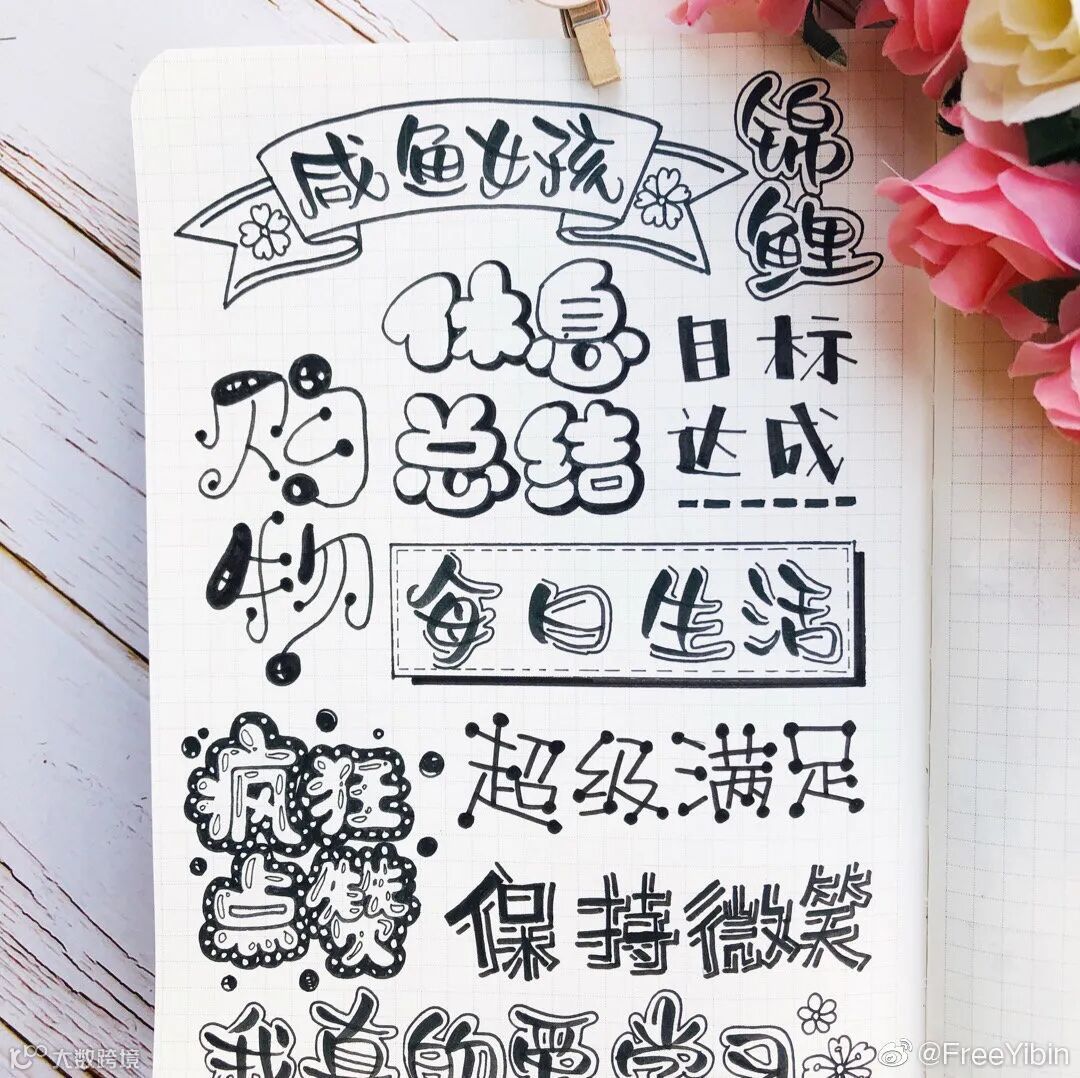 咸鱼女孩
锦鲤
休息
总结
目标
达成
购物
每日生活
疯狂
点赞
超级满足
保持微笑
我真的要学习
大数跨境
@FreeYibin